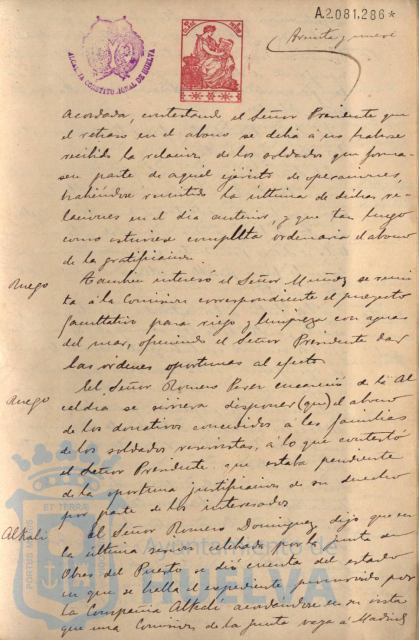 A.2.081.286*
ALCALDIA CONSTITUCIONAL DE HUELVA
acordada, contestando el Señor Presidente que
el retraso en el abono se debia á no haberse
recibido la relacion de los soldados que forma-
sen parte de aquel ejército de operaciones,
habiéndose recibido la última de dichas re-
laciones en el dia anterior, y que tan luego
como estuviese completa ordenaria el abono
de la gratificacion.
Ruego
Tambien interesó el Señor Muñoz se remi-
ta á la Comision correspondiente el proyecto
facultativo para riego y limpieza con aguas
del mar, ofreciendo el Señor Presidente dar
las ordenes oportunas al efecto.
Ruego
El Señor Romero Perez encareció de la Al-
caldia se sirviera disponer (que) el abono
de los donativos concedidos á las familias
de los soldados reservistas, á lo que contestó
el Señor Presidente que estaba pendiente
de la oportuna justificacion de su derecho
por parte de los interesados.
Alkali
El Señor Romero Dominguez dijo que en
la última sesion celebrada por la Junta de
Obras del Puerto se dió cuenta del estado
en que se halla el expediente promovido por
la Compañia Alkali acordandose en su vista
que una Comision de la Junta vaya á Madrid
PORTUS MARIS ET TERRAE
Ayuntamiento de
HUELVA